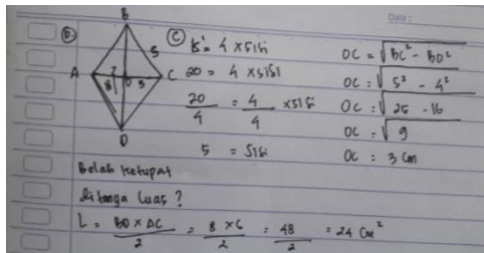 Date:
B
A
C
D
5
5
3
8
(C) k = 4 x sisi
20 = 4 x sisi
20/4 = 4/4 x sisi
5 = sisi
OC = √BC² - BO²
OC = √5² - 4²
OC = √25 - 16
OC = √9
OC = 3 cm
Belah ketupat
ditanya luas ?
L = BD x AC / 2 = 8 x 6 / 2 = 48 / 2 = 24 cm²